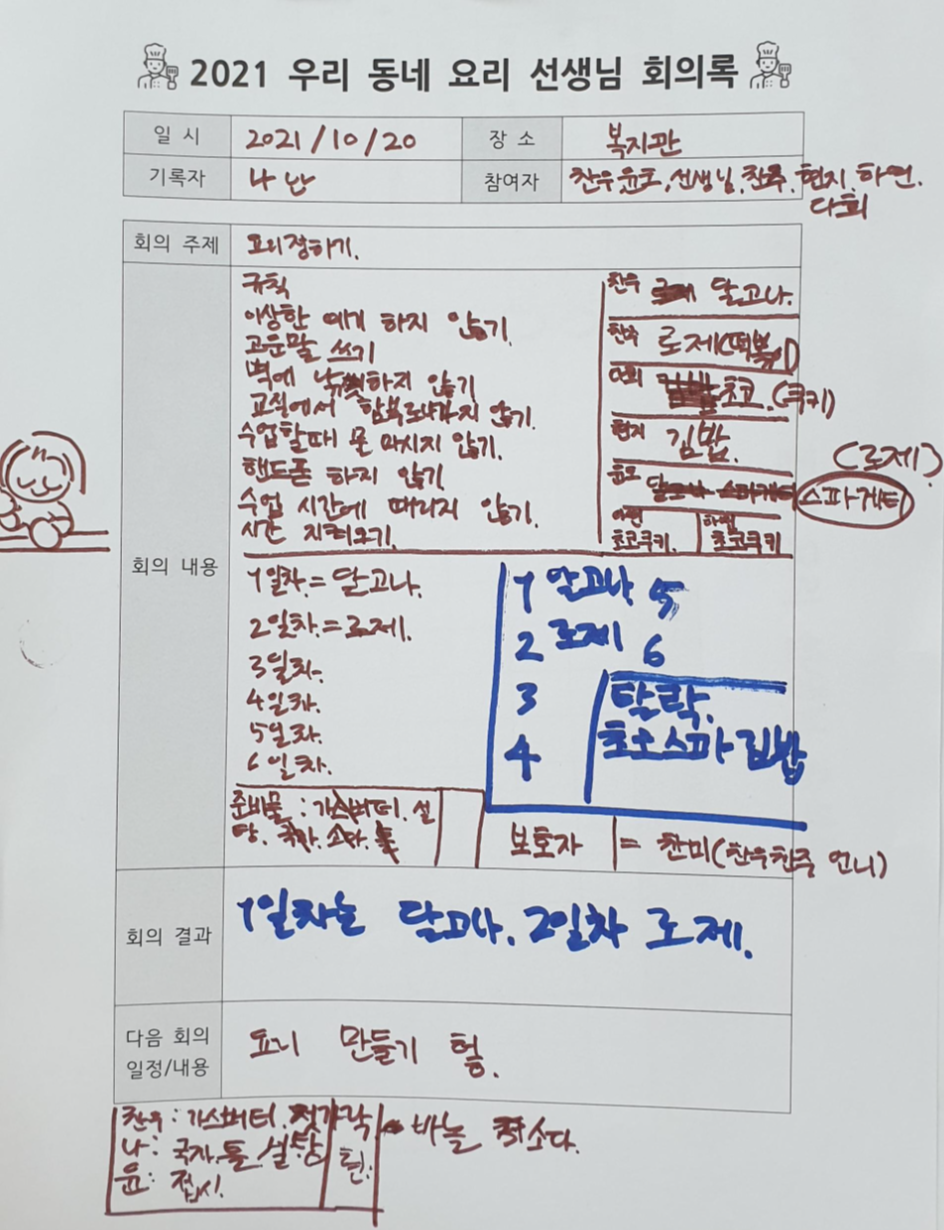 2021 우리 동네 요리 선생님 회의록
일 시 2021/10/20 장 소 복지관
기록자 나 참여자 찬우 윤호, 선생님, 찬주, 현지, 하연,
다희
회의 주제 요리정하기.
회의 내용
규칙
이상한 얘기 하지 않기.
고운말 쓰기
벽에 하지 않기
교실에서 함부로 나가지 않기.
수업할때 물 마시지 않기.
핸드폰 하지 않기
수업 시간에 때리지 않기.
시간 지켜오기.
찬우 달고나.
찬주 로제(떡볶이)
다희 초코.(쿠키)
현지 김밥.
윤호 스파게티 (로제)
초코쿠키.
하연 초코쿠키
1일차=달고나.
2일차=로제.
3일차.
4일차.
5일차.
6일차.
1 달고나 5
2 로제 6
3
4
탈락.
초코스파 김밥
준비물 : 가스버터. 설
탕. 국자. 소다.
보호자 = 찬미(찬우찬주 언니)
회의 결과 1일차는 달고나. 2일차 로제.
다음 회의
일정/내용
요리 만들기 헝.
찬우: 가스버터. 젓가락 바늘 소다.
나: 국자, 설탕
윤: 접시.
현: